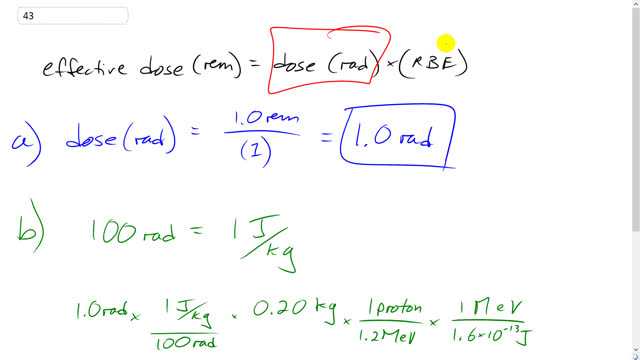 43
effective dose (rem) = dose (rad) × (RBE)
a) dose (rad) = 1.0 rem / (1) = 1.0 rad
b) 100 rad = 1 J/kg
1.0 rad × 1 J/kg / 100 rad × 0.20 kg × 1 proton / 1.2 MeV × 1 MeV / 1.6 × 10⁻¹³ J